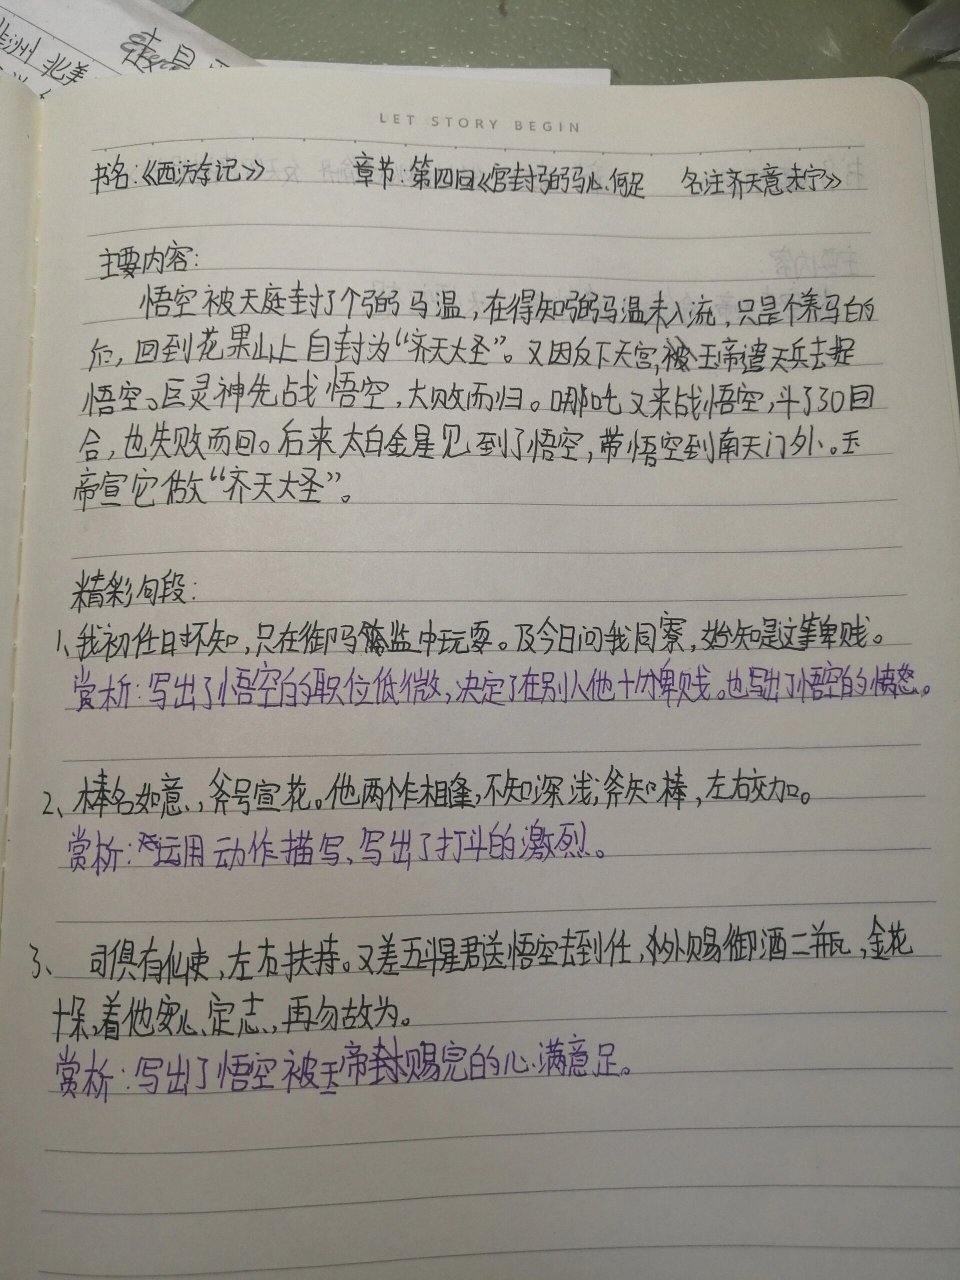 非洲 北美
LET STORY BEGIN
书名:《西游记》 章节:第四回《官封弼马心何足 名注齐天意未宁》
主要内容:
悟空被天庭封了个弼马温,在得知弼马温未入流,只是个养马的
后,回到花果山上自封为“齐天大圣”。又因反下天宫,被玉帝遣天兵去捉
悟空。巨灵神先战悟空,大败而归。哪吒又来战悟空,斗了30回
合,也失败而回。后来太白金星见到了悟空,带悟空到南天门外。玉
帝宣它做“齐天大圣”。
精彩句段:
1、我初任时不知,只在御马监中玩耍。及今日问我同寮,始知是这等卑贱。
赏析:写出了悟空的职位低微,决定了在别人他十分卑贱。也写出了悟空的愤怒。
2、棒名如意,斧号宣花。他两个乍相逢,不知深浅;斧和棒,左右交加。
赏析:运用动作描写,写出了打斗的激烈。
3、司俱有仙吏,左右扶持。又差五斗星君送悟空去到任,外赐御酒二瓶,金花
十朵,着他安心定志,再勿故为。
赏析:写出了悟空被玉帝封赐完的心满意足。